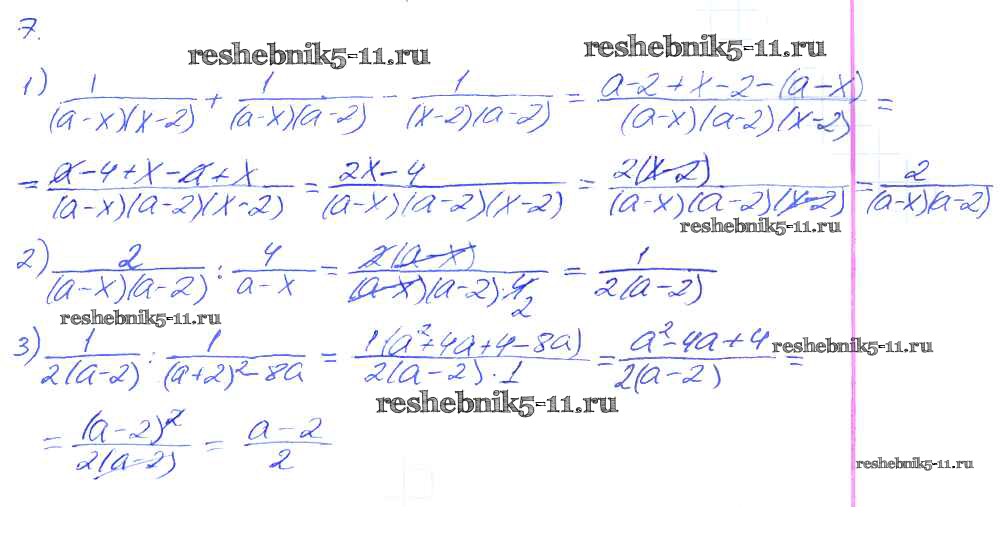 7.
reshebnik5-11.ru reshebnik5-11.ru
1) 1/((a-x)(x-2)) + 1/((a-x)(a-2)) - 1/((x-2)(a-2)) = (a-2+x-2-(a-x))/((a-x)(a-2)(x-2)) =
= (a-4+x-a+x)/((a-x)(a-2)(x-2)) = (2x-4)/((a-x)(a-2)(x-2)) = 2(x-2)/((a-x)(a-2)(x-2)) = 2/((a-x)(a-2))
reshebnik5-11.ru
2) 2/((a-x)(a-2)) : 4/(a-x) = 2(a-x)/((a-x)(a-2)·4 2) = 1/(2(a-2))
reshebnik5-11.ru
3) 1/(2(a-2)) : 1/((a+2)²-8a) = 1(a²+4a+4-8a)/(2(a-2)·1) = (a²-4a+4)/(2(a-2)) =
reshebnik5-11.ru
reshebnik5-11.ru
= (a-2)²/(2(a-2)) = (a-2)/2
reshebnik5-11.ru